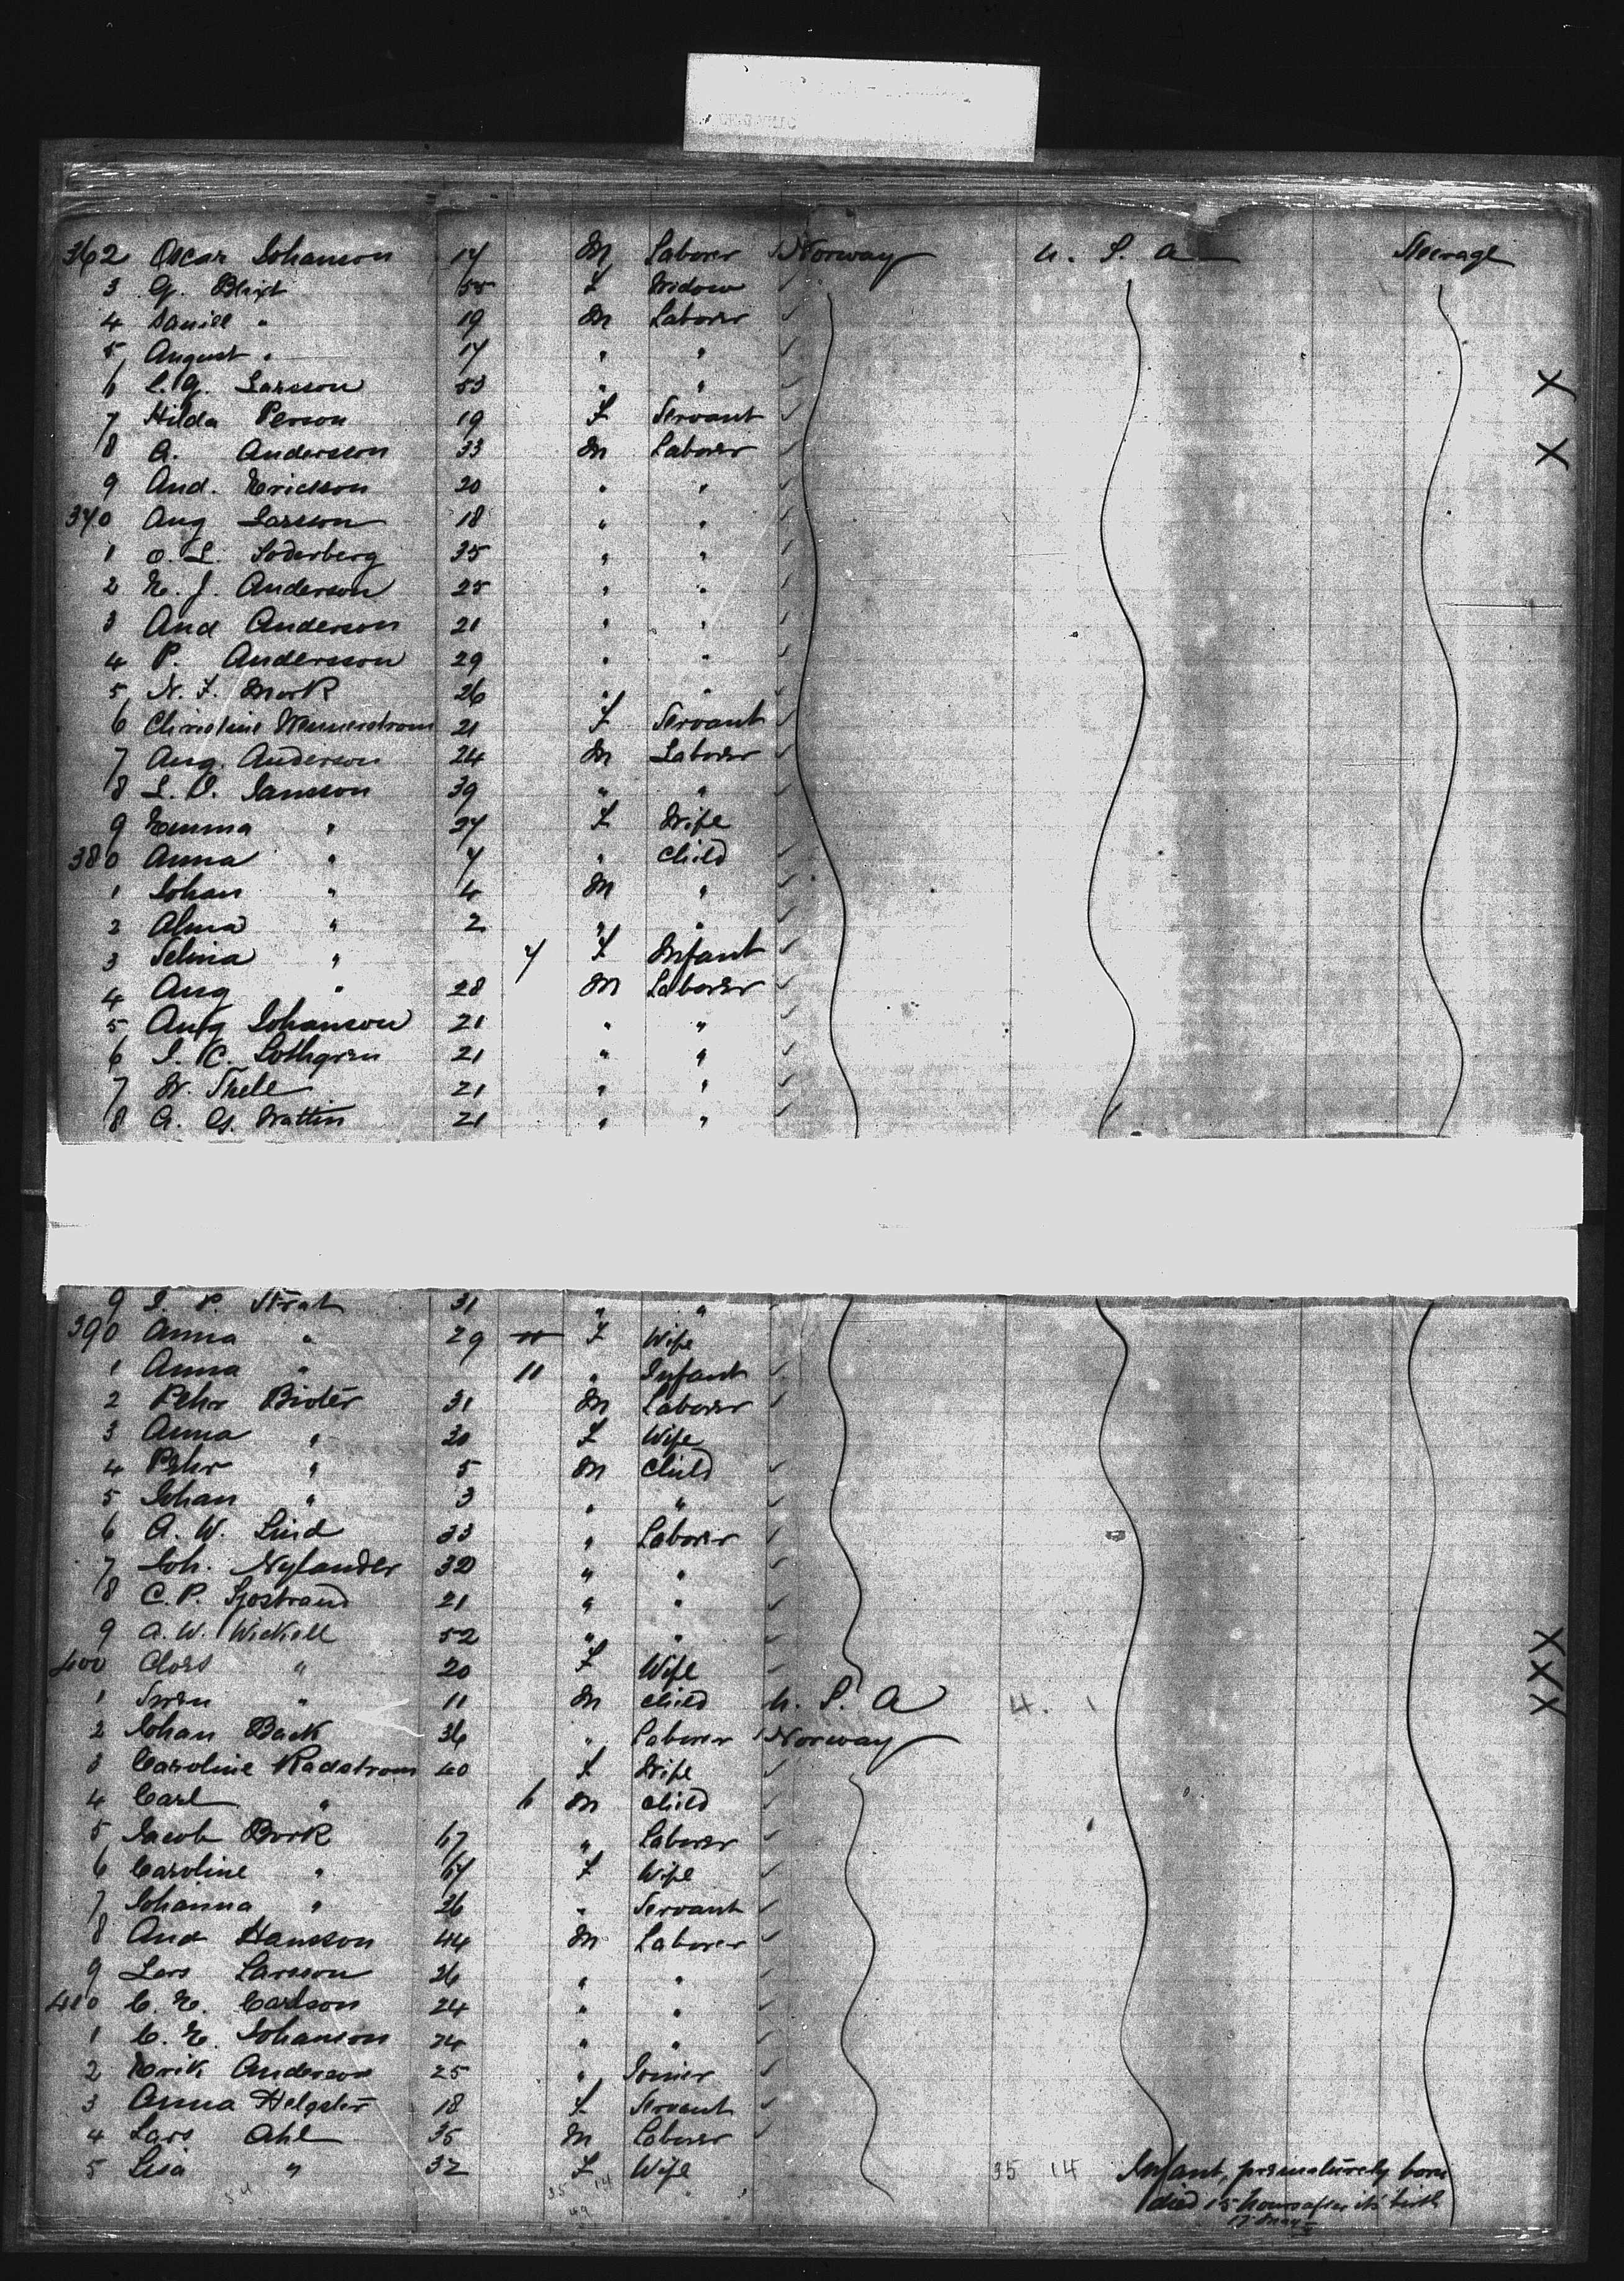 362 Oscar Johanson 17 M Laborer Norway U. S. A Steerage
3 G. Blixt 55 F Widow
4 Daniel " 19 M Laborer
5 August " 17 " "
6 C. G. Larsson 53 " " X
7 Hilda Person 19 F Servant
8 A. Andersson 33 M Laborer X
9 And. Erickson 20 " "
370 Aug Larsson 18 " "
1 O. L. Soderberg 35 " "
2 E. J. Anderson 25 " "
3 And Anderson 21 " "
4 P. Andersson 29 " "
5 N. F. Mork 26 " "
6 Christine Wennerstrom 21 F Servant
7 Aug. Anderson 24 M Laborer
8 L. O. Jansson 39 " "
9 Emma " 27 F Wife
380 Anna " 7 " Child
1 Johan " 4 M "
2 Alma " 2 " "
3 Selma " 7 F Infant
4 Aug " 28 M Laborer
5 Aug Johanson 21 " "
6 J. K. Lothgren 21 " "
7 W. Thele 21 " "
8 A. G. Wattin 21 " "
9 J. P. Strat 31 " "
390 Anna " 29 11 F Wife
1 Anna " 11 " Infant
2 Pehr Bioter 31 M Laborer
3 Anna " 30 F Wife
4 Pehr " 5 M Child
5 Johan " 3 " "
6 A. W. Lind 33 " Laborer
7 Joh. Nylander 32 " "
8 C. P. Sjostrand 21 " "
9 A. W. Wickell 52 " " X
400 Clors " 20 F Wife X
1 Swen " 11 M Child U. S. A 4. 1 X
2 Johan Back 36 " Laborer Norway
3 Caroline Radstrom 40 F Wife
4 Carl " 6 M Child
5 Jacob Bork 67 " Laborer
6 Caroline " 67 F Wife
7 Johanna " 26 " Servant
8 And Hansson 44 M Laborer
9 Lars Larsson 26 " "
410 C. E. Carlson 24 " "
1 C. E. Johanson 24 " "
2 Erik Anderson 25 " Joiner
3 Anna Helgster 18 F Servant
4 Lars Ahl 35 M Laborer
5 Lisa " 32 F Wife 35 14 Infant, prematurely born
died 15 hours after its birth
17 May
35 14
49